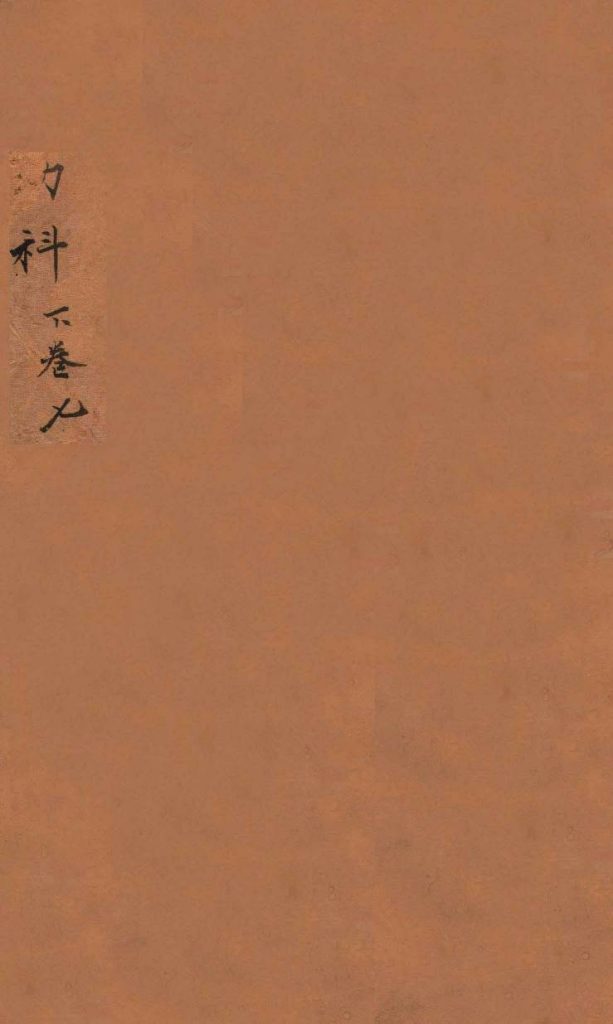 幼科下卷九